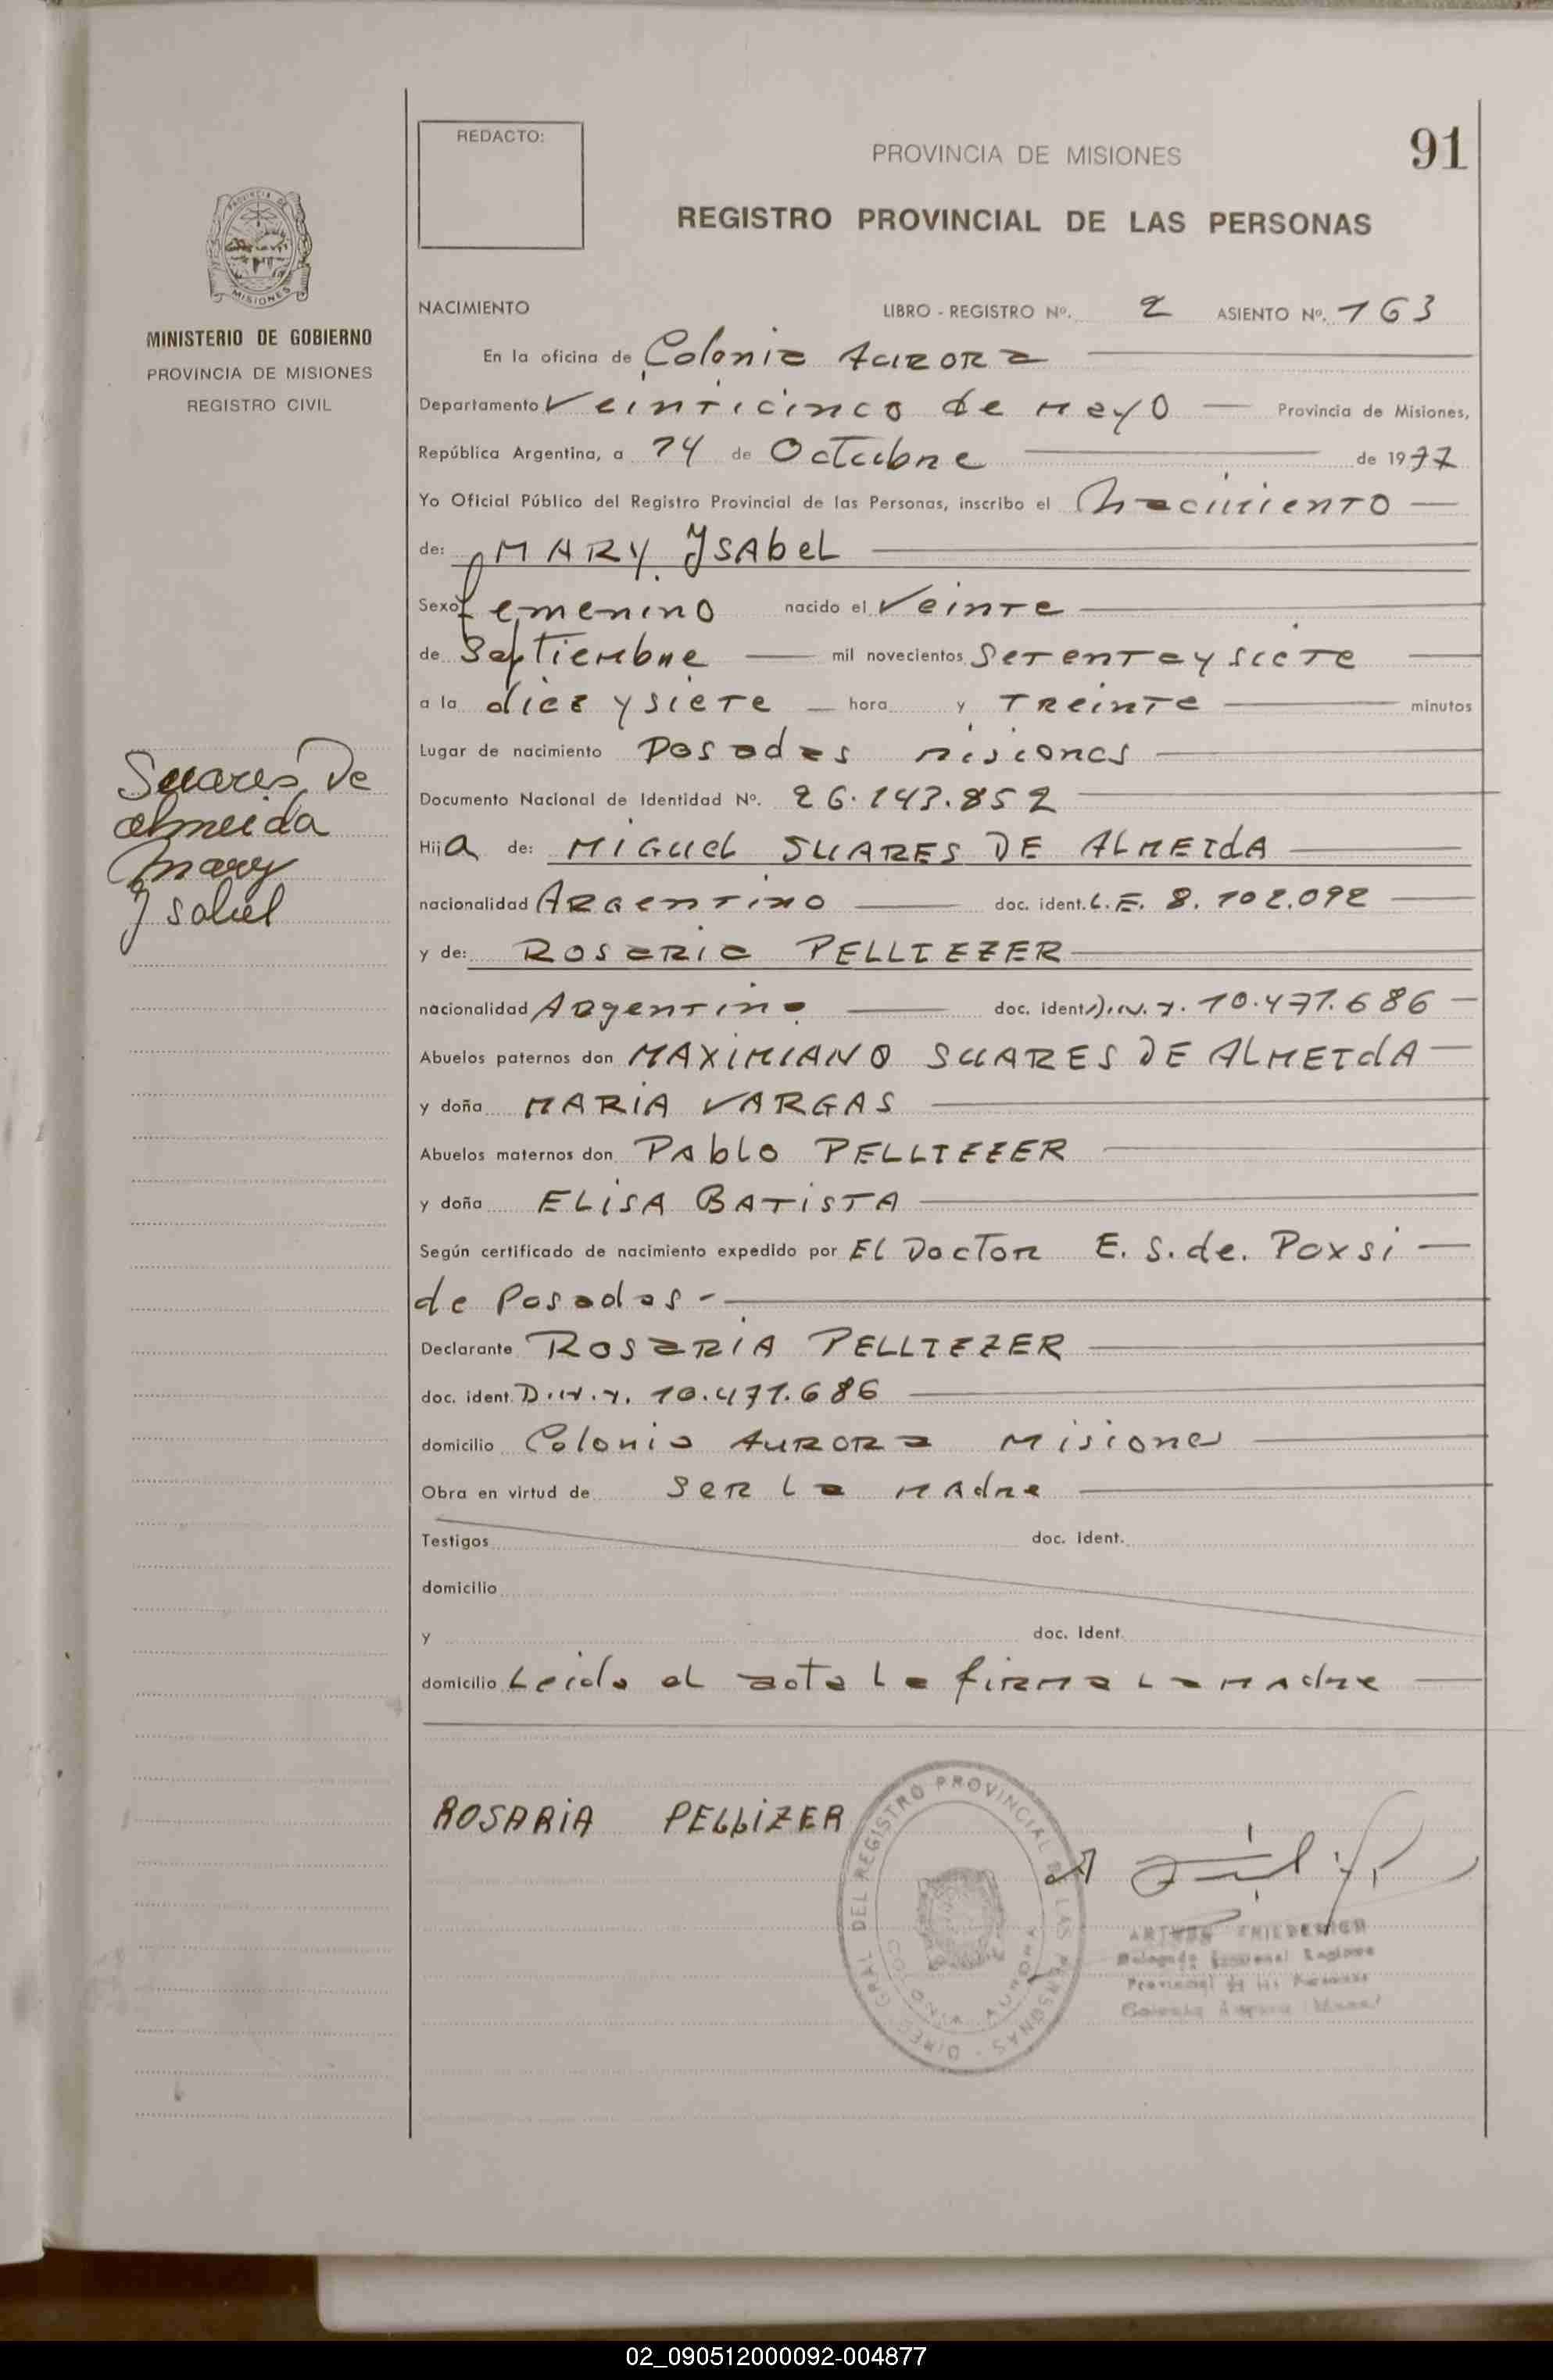 REDACTO:
PROVINCIA DE MISIONES
91
REGISTRO PROVINCIAL DE LAS PERSONAS
PROVINCIA DE
MISIONES
MINISTERIO DE GOBIERNO
PROVINCIA DE MISIONES
REGISTRO CIVIL
NACIMIENTO LIBRO - REGISTRO Nº. 2 ASIENTO Nº. 163
En la oficina de Colonia Aurora
Departamento Veinticinco de Mayo Provincia de Misiones,
República Argentina, a 14 de Octubre de 1977
Yo Oficial Público del Registro Provincial de las Personas, inscribo el Nacimiento
de: MARY YSAbeL
Sexo femenino nacido el Veinte
de Septiembre mil novecientos Setenta y siete
a la diez y siete hora y Treinta minutos
Lugar de nacimiento Posadas Misiones
Documento Nacional de Identidad Nº. 26.143.852
Hija de: MIGUEL SUARES DE ALMEIdA
nacionalidad Argentino doc. ident. L.E. 8.102.092
y de: ROSARIA PELLIEZER
nacionalidad Argentina doc. ident. D.N.Y. 10.471.686
Abuelos paternos don MAXIMIANO SUARES DE ALMEIdA
y doña MARIA VARGAS
Abuelos maternos don PAbLO PELLIEZER
y doña ELISA BATISTA
Según certificado de nacimiento expedido por El Doctor E. S. de. Poxsi
de Posadas -
Declarante ROSARIA PELLIEZER
doc. ident. D.N.Y. 10.471.686
domicilio Colonia Aurora Misiones
Obra en virtud de Ser La Madre
Testigos doc. ident.
domicilio
y doc. ident.
domicilio Leida el acta La firma La Madre
Suares De
almeida
Mary
Ysabel
ROSARIA PELLIZER
DIREC. GRAL DEL REGISTRO PROVINCIAL DE LAS PERSONAS
COLONIA AURORA
Provincial de las Personas
Colonia Aurora
02_090512000092-004877